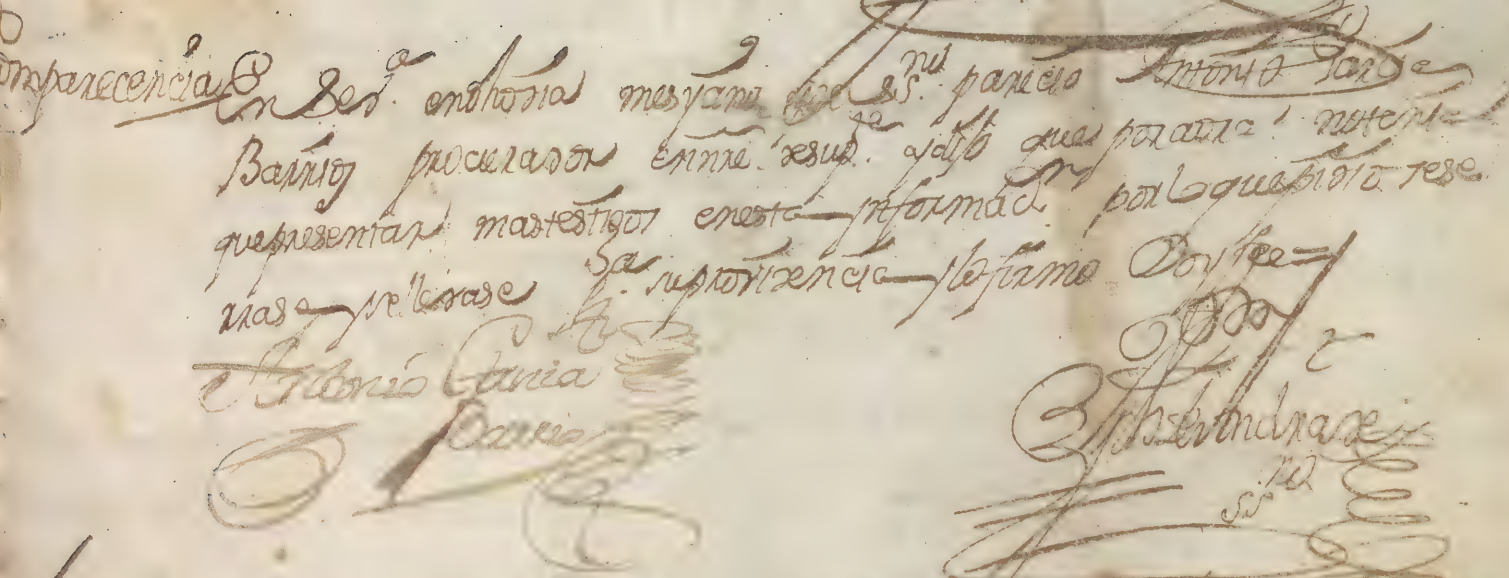 Comparecencia
En Seva. en dho dia mes y año ante mi el ssno. parecio Antonio Garcia
Barrios procurador en nre. de su pte. y dijo que por aora no tenia
que presentar mas testigos en esta ynformacn. por lo que pidio se se
rrase y se llevase pa. su providencia y lo firmo Doy fee =
Antonio Garcia
Barrios
Joseph Andrade
ssno